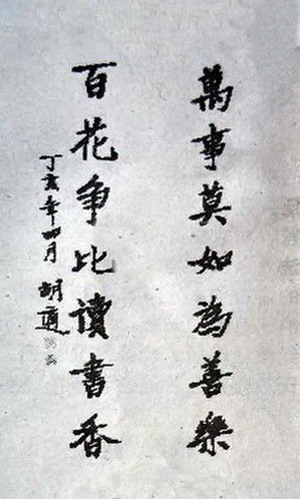 萬事莫如為善樂
百花争比讀書香
丁亥年四月 胡適